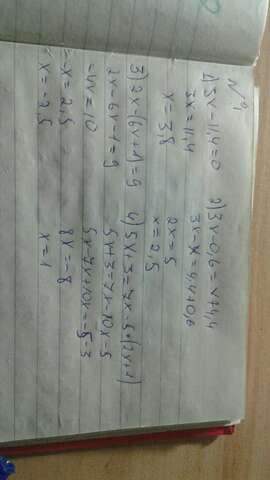 N 9
1) 3x-11,4=0 2) 3x-0,6=x+4,4
3x=11,4 3x-x=4,4+0,6
x=3,8 2x=5
x=2,5
3) 2x-(6x+1)=9 4) 5x+3=7x-5(2x+1)
2x-6x-1=9 5x+3=7x-10x-5
-4x=10 5x-7x+10x=-5-3
-x=2,5 8x=-8
x=-2,5 x=1